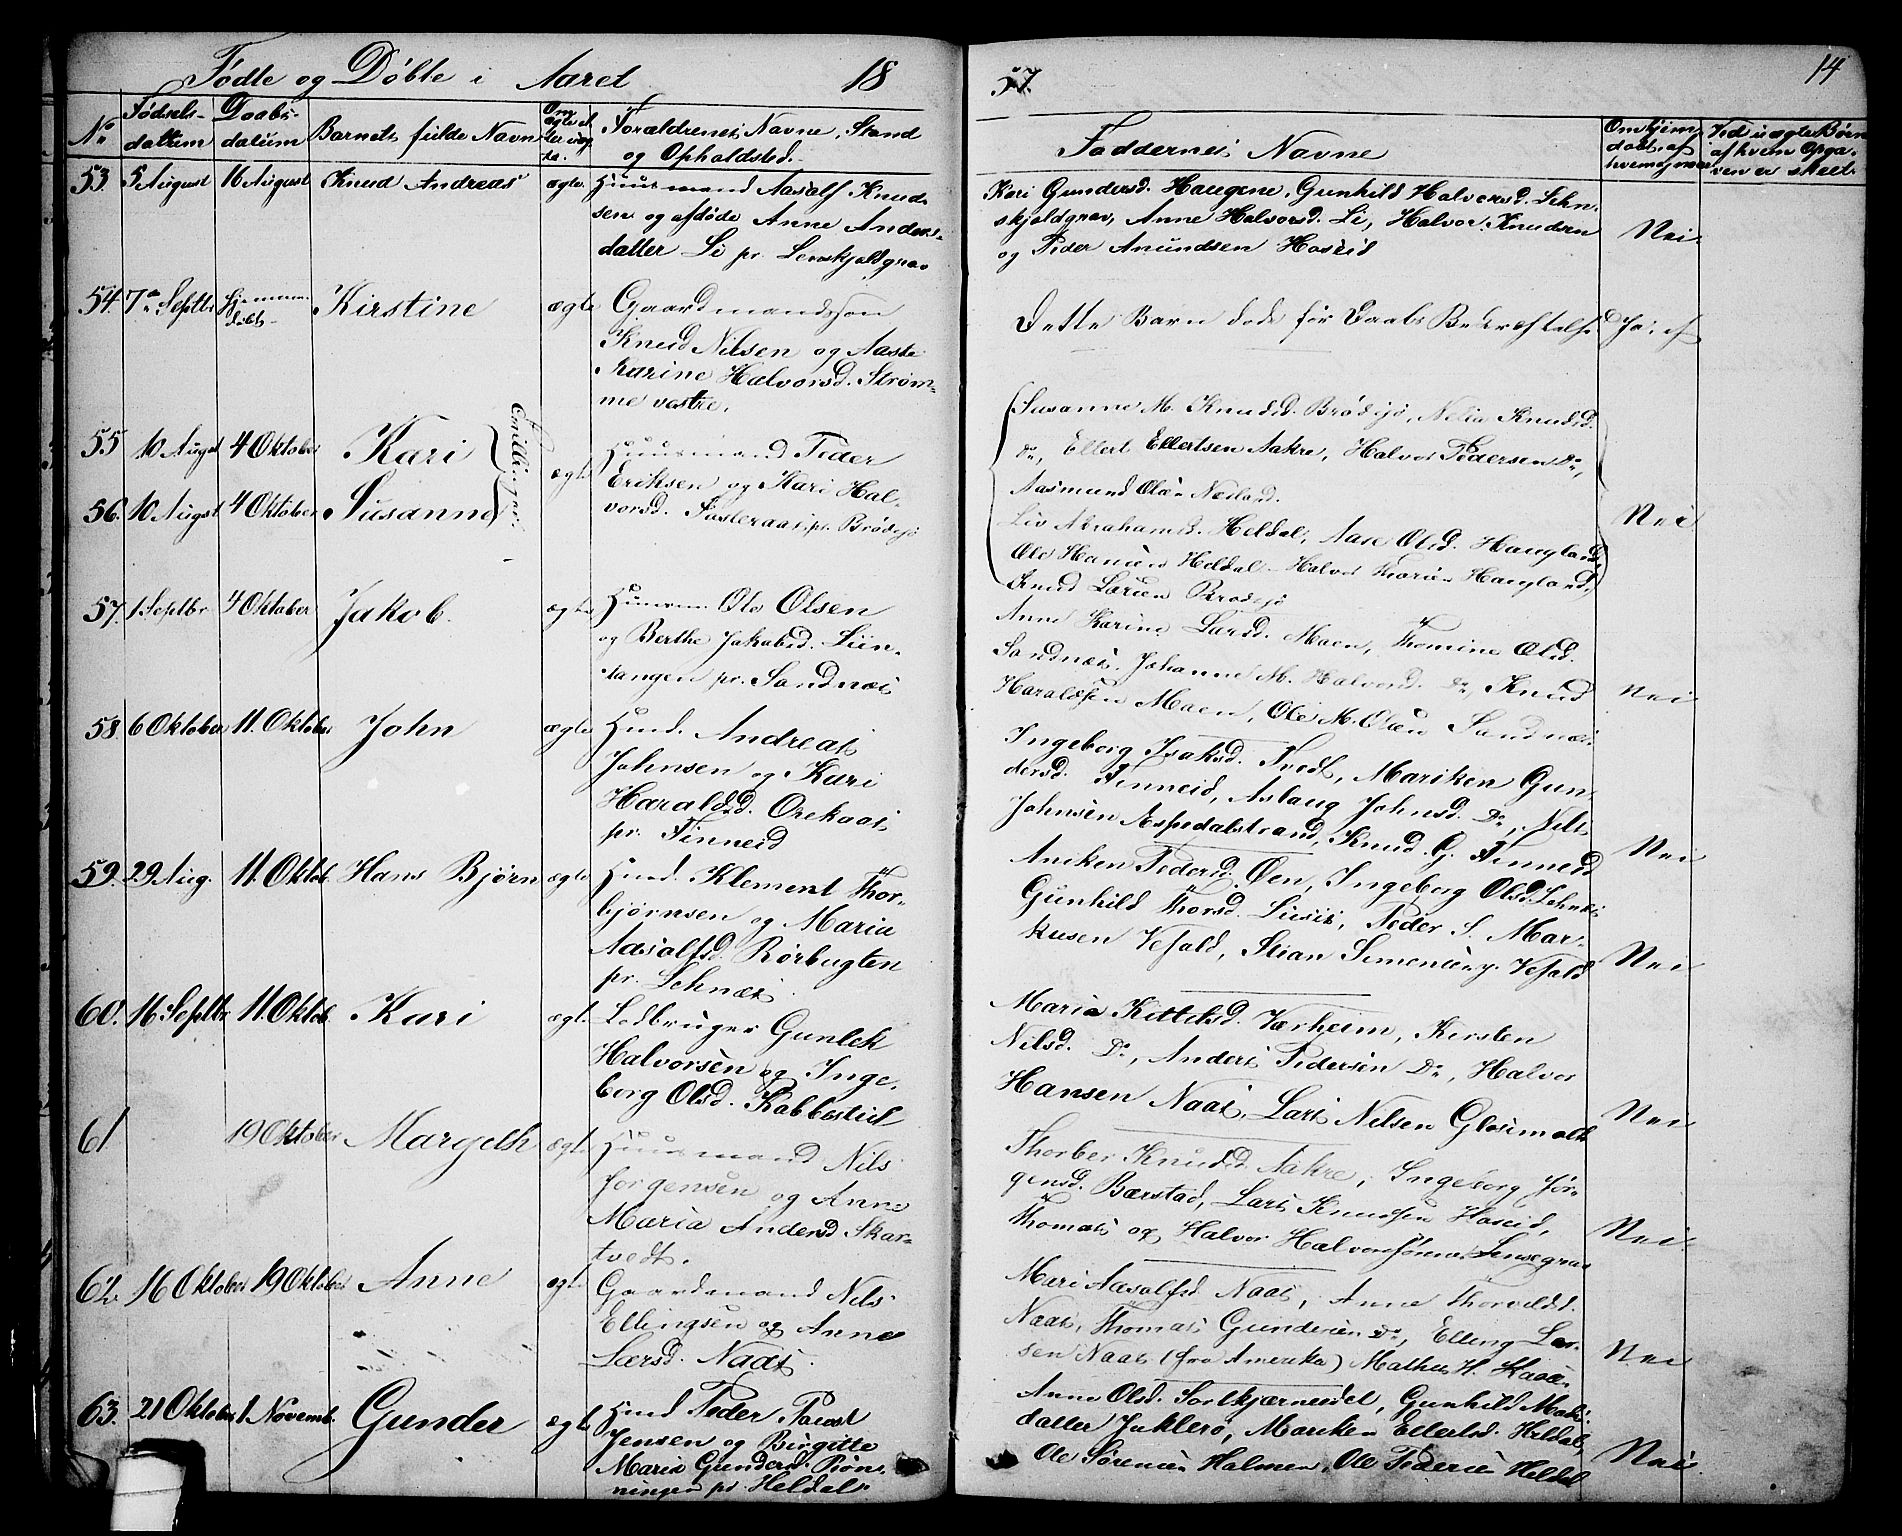 Fødte og Døbte i Aaret 18
57.
14
No
Fødsels-
datum
Daabs-
datum
Barnets fulde Navn
Om
ægte el
ler uæg
te.
Forældrenes Navne, Stand
og Opholdsted.
Faddernes Navne
Om hjem
døbt, af
hvem og naar
Ved uægte Børn
af hvem Opga-
ven er skeet.
53. 5 August 16 August Knud Andreas ægte Huusmand Aasolf Knud
sen og afdøde Anne Anders-
datter Li pr. Lenskjoldgrav
Kari Gundersd. Haugene, Gunhild Halvorsd. Lehn-
skjoldgrav, Anne Halvorsd. Li, Halvor Knudsen
og Peder Anundsen Hoseid
Nei
54. 7de Septbr Hjemme
døbt Kirstine ægte Gaardmandssøn
Knud Nilsen og Aaste
Karine Halvorsd. Strøm-
me vestre.
Dette Barn døde før Daabs Bekræftelse
Ja, af
55 10 Augst 4 Oktober Kari
56. 10 Augst 4 Oktober Susanne
Tvillinger.
ægte Huusmand Peder
Eriksen og Kari Hal-
vorsd. pr. Brødsjø
Susanne M. Knudsd. Brødsjø, Nelia Knudsd.
Do, Ellert Ellertsen Aakre, Halvor Pedersen Do,
Aasmund Olsen Næsland.
Liv Abrahamsd. Heldal, Aase Olsd. Haugland,
Ole Hansen Heldal, Halvor Haugland,
Knud Larsen Brødsjø
Nei
57. 1 Septbr 4 Oktober Jakob. ægte Huusm. Ole Olsen
og Berthe Jakobsd. Siin-
tangen pr. Sandnæs
Anne Karine Larsd. Moen, Thomine Olsd.
Sandnæs, Johanne M. Halvorsd. Do, Knud
Haraldsen Moen, Ole M. Olsen Sandnæs
Nei
58. 6 Oktober 11. Oktober John ægte Husd. Andreas
Johnsen og Kari
Haraldsd. Orekaas
pr. Finneid
Ingeborg Isaksd. Tvedt, Mariken Gun-
dersd. Finneid, Aslaug Johnsd. Do, Nils
Johnsen Espedalstrand, Knud G. Finneid
Nei
59. 29 Aug. 11. Oktob. Hans Bjørn ægte Husd. Klement Thor-
bjørnsen og Maria
Aasolfsd. Rørbugten
pr. Lehnæs
Aniken Pedersd. Øen, Ingeborg Olsd. Lehnæs
Gunhild Thorsd. Peder S. Mar-
kusen Vefald, Stian Simensen Vefald
Nei
60. 16 Septbr 11. Oktob. Kari ægte Lodbruger Gunlek
Halvorsen og Inge-
borg Olsd. Rabbestul
Maria Kittelsd. Værheim, Kirsten
Nilsd. Do, Anders Pedersen Do, Halvor
Hansen Naas, Lars Nilsen
Nei
61 19 Oktober Margeth ægte Huusmand Nils
Jørgensen og Anne
Maria Andersd Skar-
tvedt.
Thorber Knudsd Aakre, Ingeborg Jør-
gensd. Bærstad, Lars Knudsen Hoseid,
Thomas og Halvor Halvorsønner Lensegrav
Nei
62. 16 Oktober 19 Oktober Anne ægte Gaardmand Nils
Ellingsen og Anne
Larsd. Naas.
Mari Aasolfsd Naas, Anne Thorvildsd.
Naas, Thomas Gundersen Do, Elling Lar-
sen Naas (fra Amerika) Mathis H. Kaasa
Nei
63. 21 Oktober 1 Novemb. Gunder ægte Husd Peder Povel
Jensen og Birgitte
Maria Gundersd. Røn-
ningen pr. Heldal
Anne Olsd. Gunhild Mads-
datter Jukterø, Mariken Ellertsd. Heldal,
Ole Sørensen Holmen, Ole Pedersen Heldal
Nei